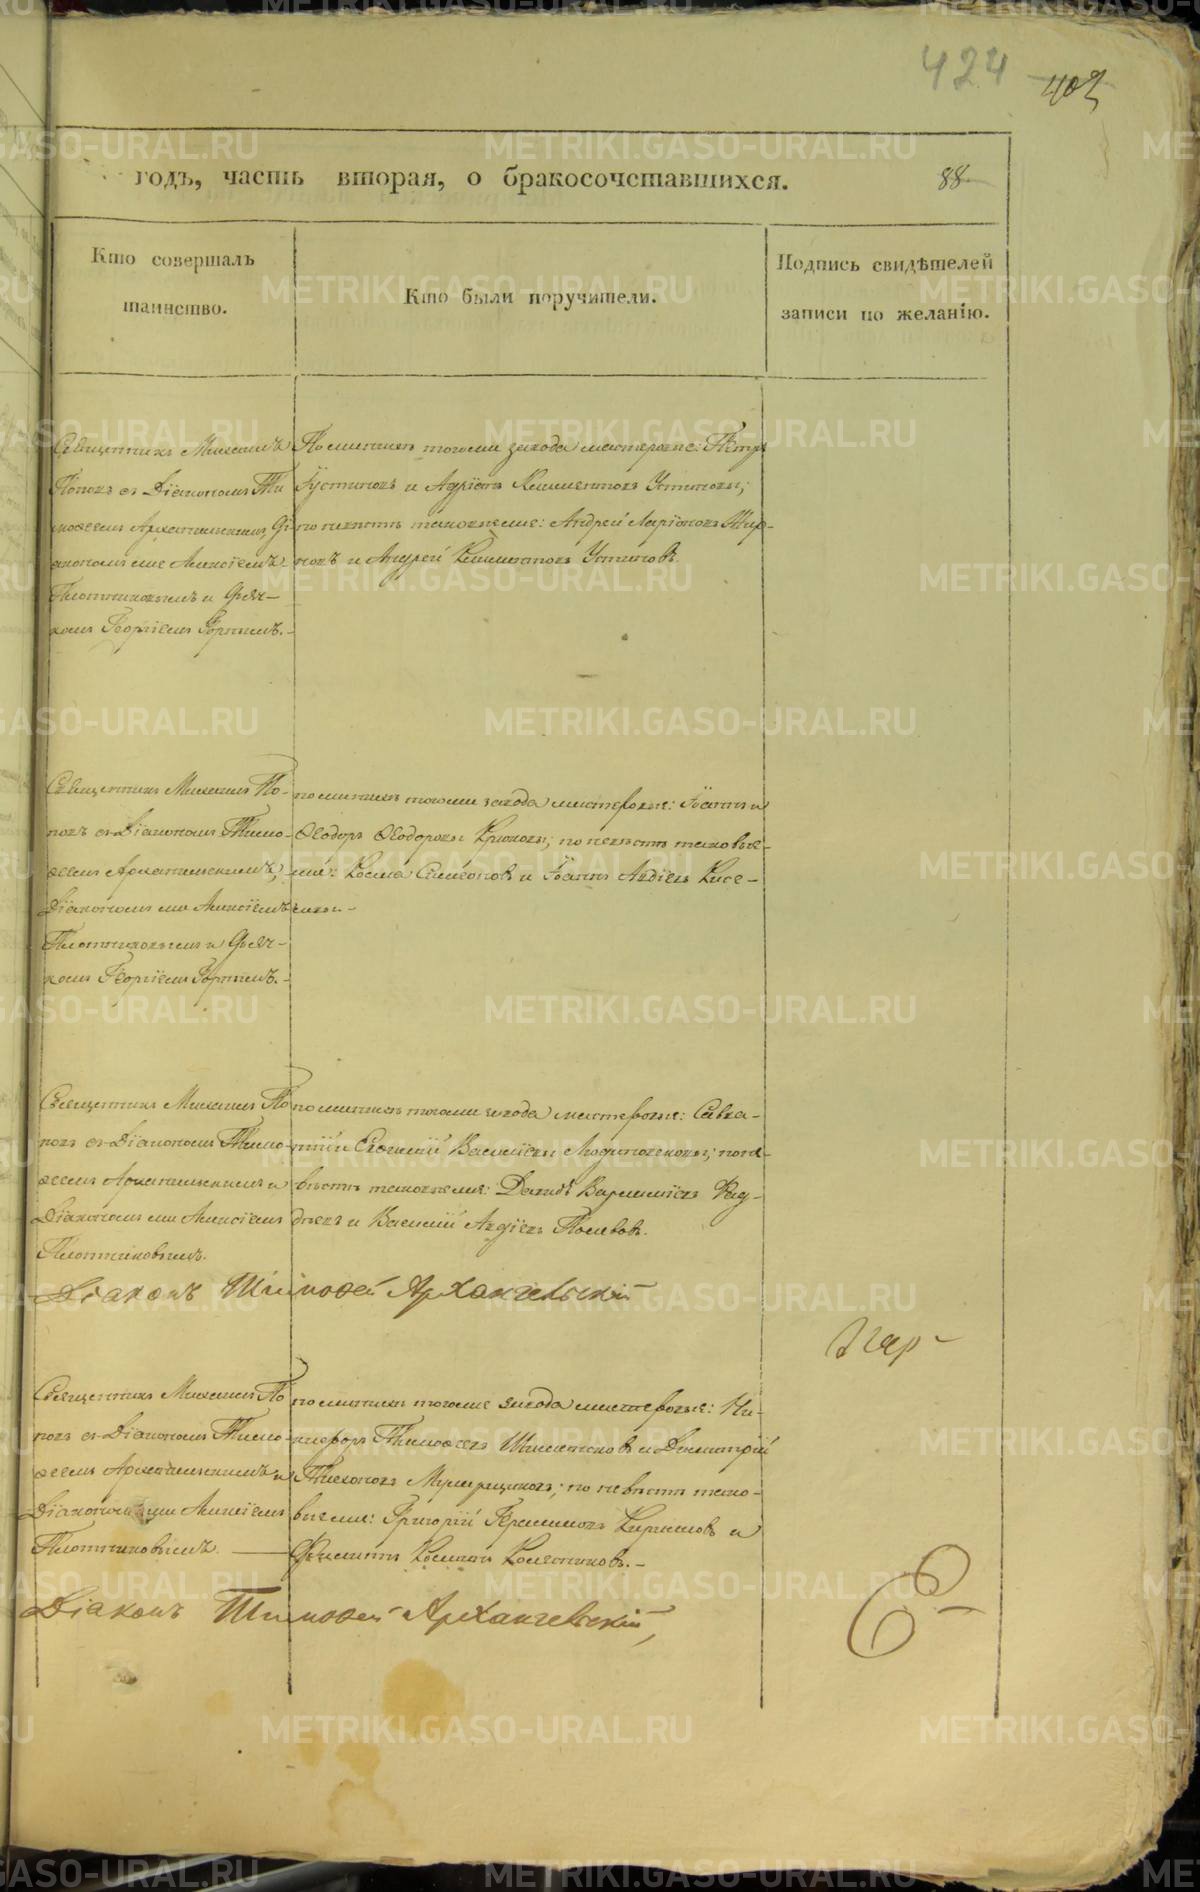 424 402
годъ, часть вторая, о бракосочетавшихся. 88
Кто совершалъ
таинство.
Кто были поручители.
Подпись свидѣтелей
записи по желанію.
Священникъ Михаилъ
Поповъ съ Діакономъ Ти
моѳеемъ Архангельскимъ, Ді
акономъ же Алексіемъ
Плотниковымъ и Дьяч-
комъ Георгіемъ Горнымъ.-
По женихѣ тогоже завода мастеровые: Петръ
Іустиновъ и Адріанъ Климентовъ Устиновы;
по невѣстѣ таковыеже: Андрей Ларіоновъ
и Андрей Климентовъ Устиновъ.
Священникъ Михаилъ По-
повъ съ Діакономъ Тимо-
ѳеемъ Архангельскимъ,
Діакономъ же Алексіемъ
Плотниковымъ и Дьяч-
комъ Георгіемъ Горнымъ.-
по женихѣ тогоже завода мастеровые: Іоаннъ и
Ѳеодоръ Ѳеодоровы Крюковы; по невѣстѣ таковые-
же: Косма Симеоновъ и Іоаннъ Авдіевъ Кисе-
левы.-
Священникъ Михаилъ По
повъ съ Діакономъ Тимо-
ѳеемъ Архангельскимъ и
Діакономъ же Алексіемъ
Плотниковымъ.
по женихѣ тогоже завода мастеровые: Савва-
тій и Евгеній Васильевы; по не-
вѣстѣ таковыеже: Давидъ
и Василій Авдіевъ Полевовъ.
Діаконъ Тимоѳей Архангельскій
Священникъ Михаилъ По
повъ съ Діакономъ Тимо-
ѳеемъ Архангельскимъ и
Діакономъ же Алексіемъ
Плотниковымъ.
по женихѣ тогоже завода мастеровые: Ни-
кифоръ Тимоѳеевъ и Димитрій
Тихоновъ; по невѣстѣ тако-
выеже: Григорій Кириловъ и
Филиппъ Косминъ Колесниковъ.-
Діаконъ Тимоѳей Архангельскій,
METRIKI.GASO-URAL.RU